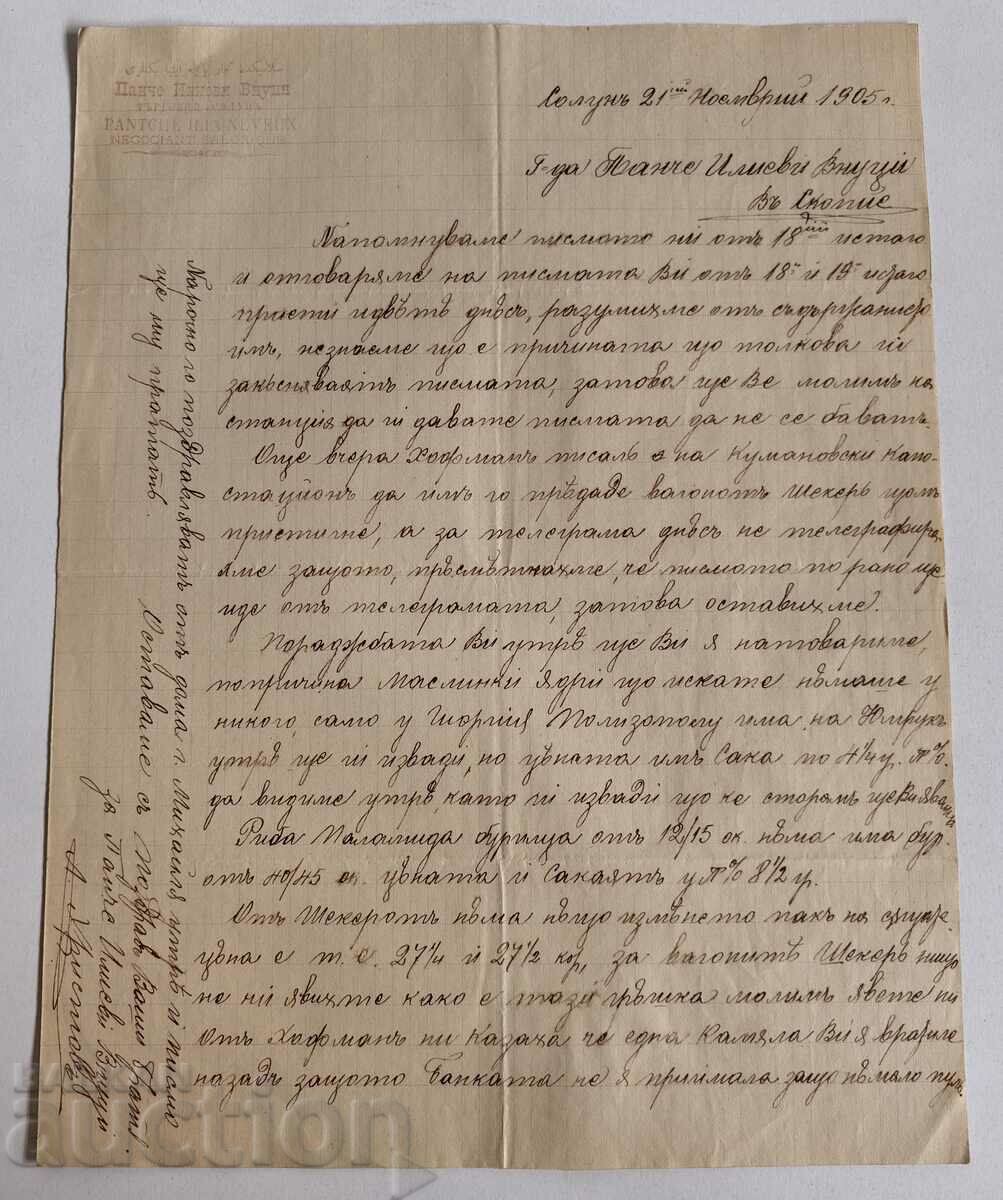 Панче Илиеви Внуци
PANTCHE ILIA NEVEUX
NEGOCIANT SALONIQUE
Солунъ 21ій Ноемврий 1905 г.
Г-да Панче Илиеви Внуци
Въ Скопие
Напомнуваме писмото ни отъ 18ий истаго
и отговаряме на писмата Ви отъ 18й и 19й истаго
прости и двѣтѣ днѣсъ, разумихме отъ съдържанието
имъ, незнаеме що е причината що толкова ги
закъсняваятъ писмата, затова ще Ве молимъ на
станция да ги давате писмата да не се баватъ.
Още вчера Хофманъ писалъ е на Кумановски капо-
стационъ да имъ го прѣдаде вагонотъ Шекеръ щомъ
пристигне, а за телеграма днѣсъ не телеграфира-
хме защото, прѣсмѣтнахме, че писмото по рано ще
иде отъ телеграмата, затова оставихме.
Пораджбата Ви утрѣ ще Ви я натовариме,
попричина Маслинки ядри що искате нѣмаше у
никого, само у Гиоргия Полизополу има на Юмрукъ
утрѣ ще ги извади, но цѣната имъ Сака по 4 1/4 г. л%.
да видиме утрѣ като ги извади що ке сторамъ ще Ви явимъ
Риба Паламида бурища отъ 12/15 ок. нѣма има бур.
отъ 40/45 ок. цѣната и Сакаятъ 8 1/2 гр.
Отъ Шекеротъ нѣма нѣщо измѣнето пакъ на
цѣна е т. е. 27 1/4 и 27 1/2 кор, за вагонитѣ Шекеръ нищо
не ни явихте како е тази грѣшка молимъ явете ни
Отъ Хофманъ ни казаха че една Камяла Ви я вратиле
назадъ защото Банката не я приимала защо нѣмало пулъ.
Нарочно го поздравляватъ отъ дома г. Михаиля утрѣ и писмо
ще му прататъ.
Оставаме съ Поздравъ Ваши Братя
за Панче Илиеви Внуци